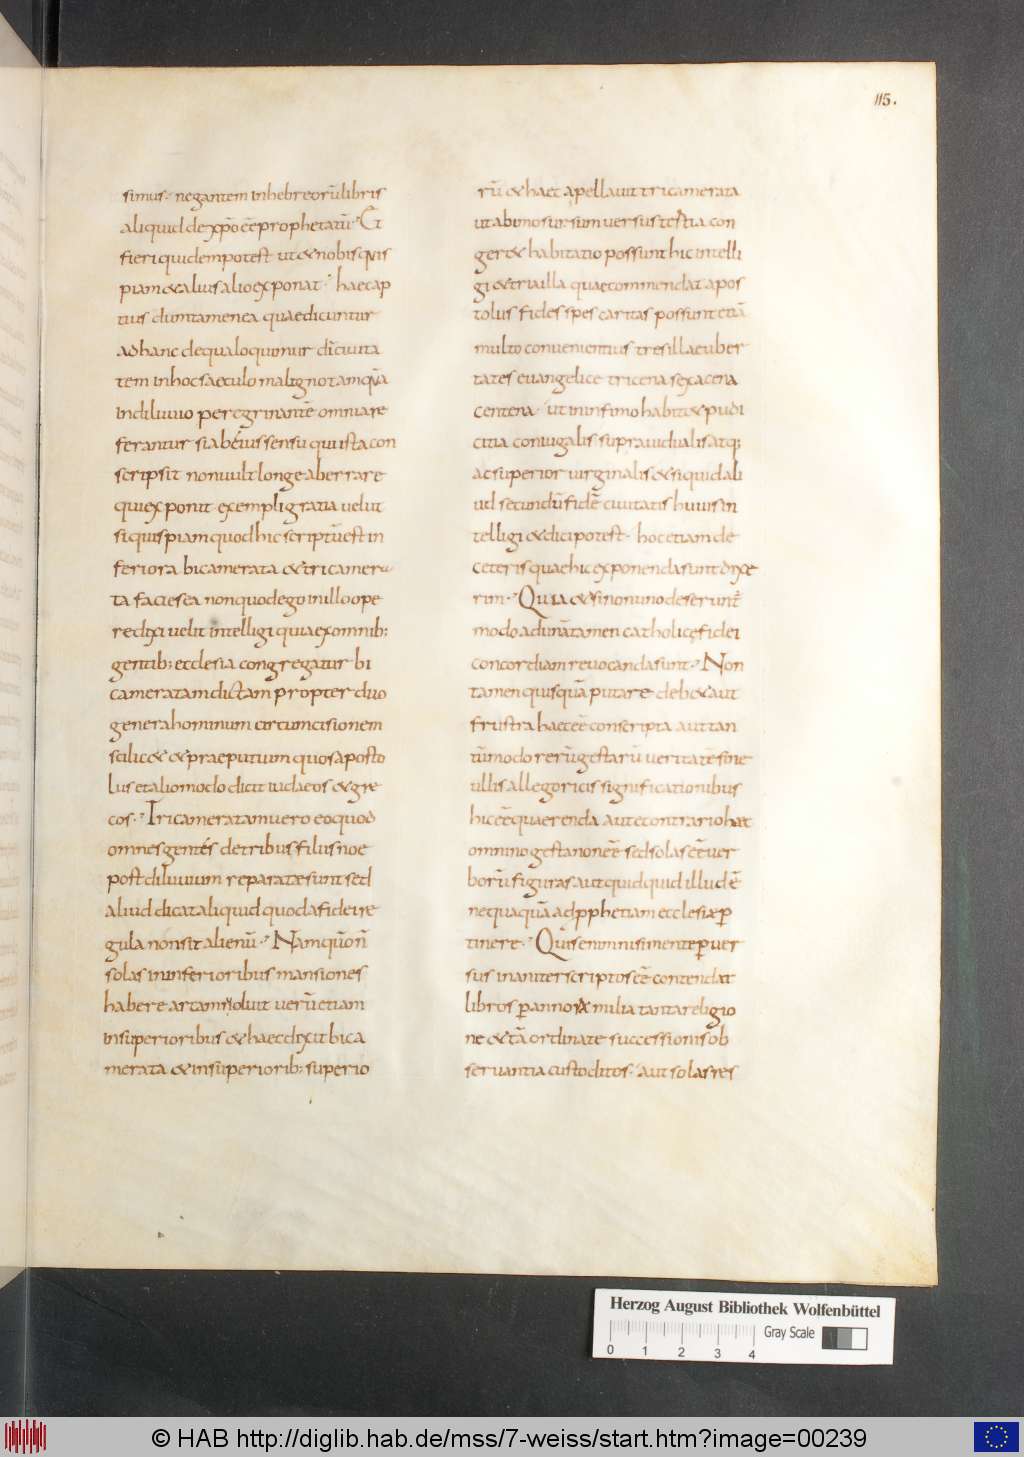 115.
simus· negantem inhebreorū libris
aliquid dexp̄o eē prophetatū· Et
fieri quidem potest ut & nobis quis
piam & alius alio exponat· haec ap
tius dum tamen ea quae dicuntur
ad hanc dequa loquimur d̄i ciuita
tem inhoc saeculo maligno tamquā
in diluuio peregrinantē omnia re
ferantur si ab eius sensu qui ista con
scripsit non uult longe aberrare
qui exponit exempli gratia uelut
si quispiam quod hic scriptū est in
feriora bicamerata & tricamera
ta facies ea non quod ego in illo ope
re dixi uelit intelligi quia ex omnib:
gentib: ecclesia congregatur bi
cameratam dictam propter duo
genera hominum circumcisionem
scilic& & praeputium quos aposto
lus et alio modo dicit iudaeos & gre
cos· Tricameratam uero eo quod
omnes gentes detribus filiis noe
post diluuium reparatae sunt sed
aliud dicat aliquid quod a fidei re
gula non sit alienū· Nam quō n̄
solas in inferioribus mansiones
habere arcam uoluit uerū etiam
insuperioribus & haec dixit bica
merata & insuperiorib: superio
rū & haec apellauit tricamerata
ut ab imo sursum uersus tertia con
gere& habitatio possunt hic intelli
gi & tria illa quae commendat apos
tolus fides spes caritas possunt etiā
multo conuenientius tres illae uber
tates euangelice tricena sexacena
centena· ut in infimo habit& pudi
citia coniugalis supra uidualis atq;
ac superior uirginalis & siquid ali
ud secundū fidē ciuitatis huius in
telligi & dici potest· hoc etiam de
ceteris quae hic exponenda sunt dixe
rim· Quia & si non uno deserunt̄
modo ad unā tamen catholicę fidei
concordiam reuocanda sunt· Non
tamen quisquā putare deb& aut
frustra haec eē conscripta aut tan
tūmodo rerū gestarū ueritatē sine
ullis allegoricis significationibus
hic eē quaerenda aut econtrario haec
omnino gesta non eē sed solas eē uer
borū figuras aut quidquid illud ē
nequaquā ad pphetiam ecclesiae p
tinere· Quis enim nisi mente p uer
sus inaniter scriptos eē contendat
libros p annorū milia tanta religio
ne & tā ordinate successionis ob
seruantia custoditos· aut solas res
Herzog August Bibliothek Wolfenbüttel
0 1 2 3 4 Gray Scale
© HAB http://diglib.hab.de/mss/7-weiss/start.htm?image=00239